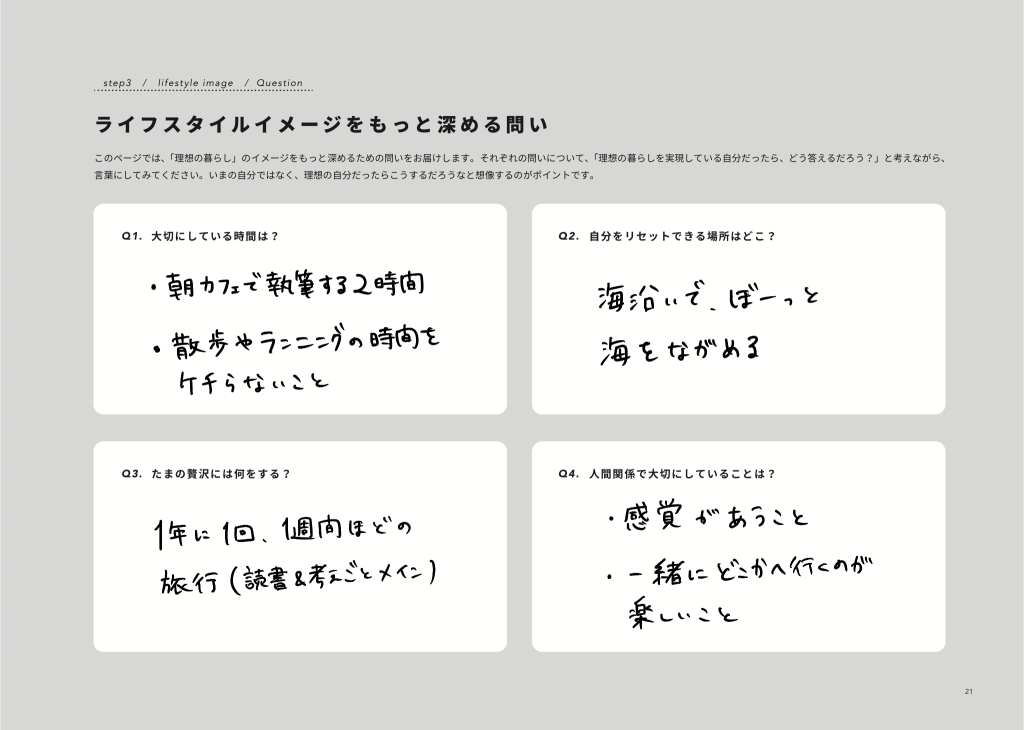 step3 / lifestyle image / Question
ライフスタイルイメージをもっと深める問い
このページでは、「理想の暮らし」のイメージをもっと深めるための問いをお届けします。それぞれの問いについて、「理想の暮らしを実現している自分だったら、どう答えるだろう？」と考えながら、
言葉にしてみてください。いまの自分ではなく、理想の自分だったらこうするだろうなと想像するのがポイントです。
Q1. 大切にしている時間は？
・朝カフェで執筆する2時間
・散歩やランニングの時間を
ケチらないこと
Q2. 自分をリセットできる場所はどこ？
海沿いで、ぼーっと
海をながめる
Q3. たまの贅沢には何をする？
1年に1回、1週間ほどの
旅行(読書&考えごとメイン)
Q4. 人間関係で大切にしていることは？
・感覚があうこと
・一緒にどこかへ行くのが
楽しいこと
21